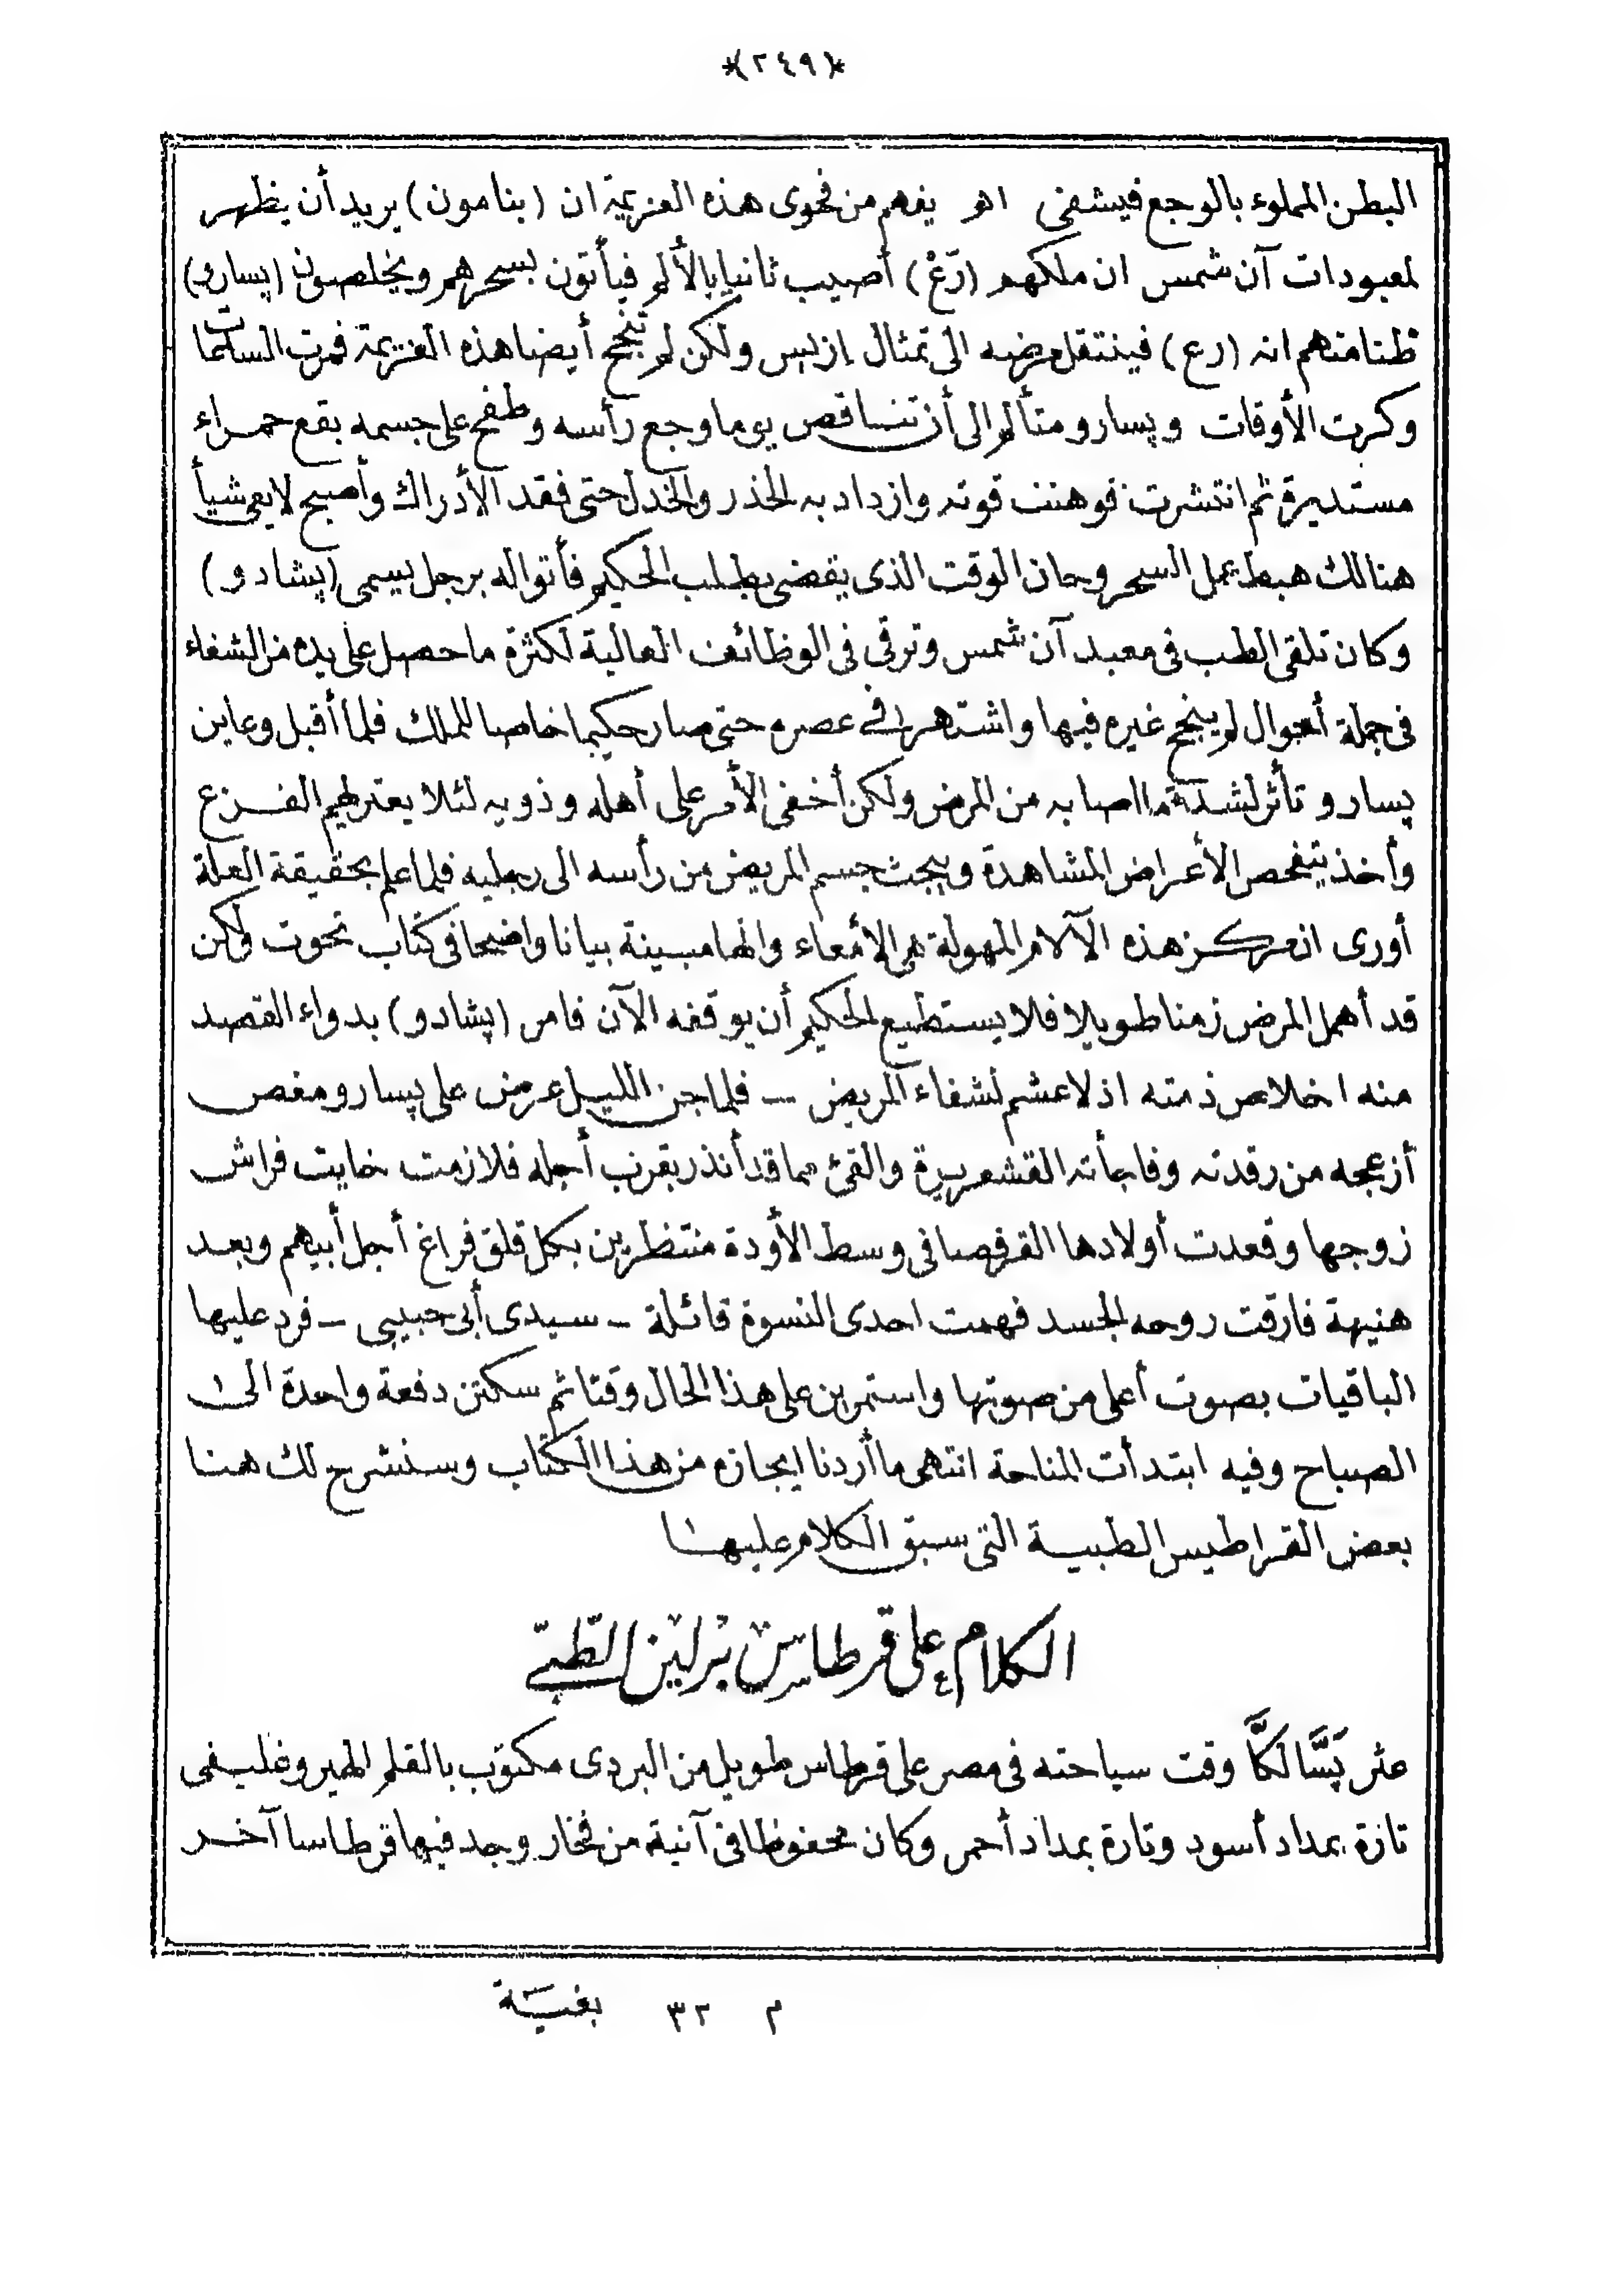 *(٢٤٩)*
البطن المملوء بالوجع فيشفى اهـ يفهم من فحوى هذه العزيمة ان (بنامون) يريد أن يظهر
لمعبودات آن شمس ان ملكهم (رَعْ) أصيب ثانيا بالألم فيأتون بسحرهم ويخلصون (پسارو)
ظنا منهم انه (رع) فينتقل مرضه الى تمثال إزيس ولكن لم تنجح أيضا هذه العزيمة فمرت الساعات
وكرت الأوقات وپسارو متألم الى أن تناقص يوما وجع رأسه وطفح على جسمه بقع حمراء
مستديرة ثم انتشرت فوهنت قوته وازداد به الخدر والخدل حتى فقد الأدراك وأصبح لا يعى شيأ
هنالك هبط عمل السحر وحان الوقت الذى يقضى بطلب الحكيم فأتوا له برجل يسمى (پشادو)
وكان تلقى الطب فى معبد آن شمس وترقى فى الوظائف العالية لكثرة ما حصل على يده من الشفاء
فى جملة أحوال لم ينجح غيره فيها واشتهر فى عصره حتى صار حكيما خاصا للملك فلما أقبل وعاين
پسارو تأثر لشدة ما اصابه من المرض ولكن أخفى الأمر على أهله وذويه لئلا يعتريهم الفزع
وأخذ يتفحص الأعراض المشاهدة ويبحث جسم المريض من رأسه الى رجليه فلما علم بحقيقة العلة
أورى ان مركز هذه الآلام المهولة هى الامعاء وانها مبينة بيانا واضحا فى كتاب تحوت ولكن
قد أهمل المرض زمنا طويلا فلا يستطيع الحكيم أن يوقفه الآن فامر (پشادو) بدواء القصد
منه اخلاص ذمته اذ لا عشم لشفاء المريض — فلما جن الليل عرض على پسارو مغص
أزعجه من رقدته وفاجأته القشعريرة والقئ مما قد أنذر بقرب أجله فلازمت خايت فراش
زوجها وقعدت أولادها القرفصا فى وسط الأودة منتظرين بكل قلق فراغ أجل أبيهم وبعد
هنيهة فارقت روحه الجسد فهمت احدى النسوة قائلة — سيدى أبى حبيبى — فرد عليها
الباقيات بصوت أعلى من صوتها واستمرين على هذا الحال وقتا ثم سكتن دفعة واحدة الى
الصباح وفيه ابتدأت المناحة انتهى ما أردنا ايجازه من هذا الكتاب وسنشرح لك هنا
بعض القراطيس الطبية التى سبق الكلام عليها
الكلام على قرطاس برلين الطبّى
عثر پَسَّالَكَّا وقت سياحته فى مصر على قرطاس طويل من البردى مكتوب بالقلم الهيروغليفى
تارة بمداد أسود وتارة بمداد أحمر وكان محفوظا فى آنية من فخار وجد فيها قرطاسا آخر
م ٣٢ بغية